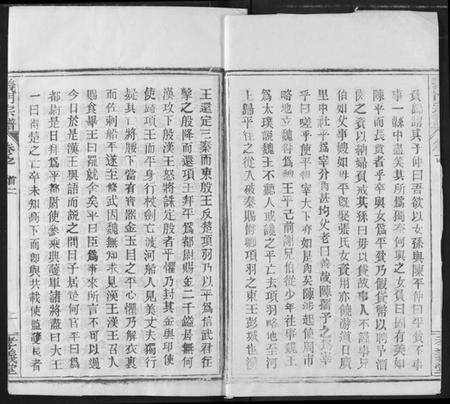 負歸謂其子仲曰吾欲以女孫與陳平仲曰平貧不事
事一縣中盡笑其所爲獨奈何與之女負曰固有美如
陳平而長貧者乎卒與女爲平貧乃假貸幣以聘予酒
肉之資以納婦負戒其孫曰毋以貧故事人不謹事兄
伯如父事嫂如母平旣娶張氏女資用亦饒游道日廣
里中社平爲宰分肉甚均父老曰善哉陳孺子之爲宰
平曰嗟乎使平得宰天下亦如是肉矣陳涉起使周市
略地立魏咎爲魏王平已前謝兄伯從少年往事魏王
爲太僕說魏王不聽人或讒之平亡去項羽略地至河
上歸平往之從入破秦賜卿項羽之東王彭城也漢
王還定三秦而東殷王反楚項羽乃以平爲信武君往
擊之殷降而還項王拜平爲都尉賜金二千鎰居無何
漢攻下殷項王怒將誅定殷者平懼乃封其金與印使
使歸項王而平身行杖劍亡渡河船人見美丈夫獨行
疑其亡將腰下當有寶器金玉目之平心懼乃解衣裸
而佐刺船平遂至修武因魏無知求見漢王漢王召入
賜食畢王曰罷就舍矣平曰臣爲事來所言不可以過
今日於是漢王與語而說之問曰子居楚何官平曰爲
都尉是日拜爲平都尉使參乘典護軍諸將盡曰大王
一日得楚之亡卒未知高下而即與共載使監護長者
卷之首